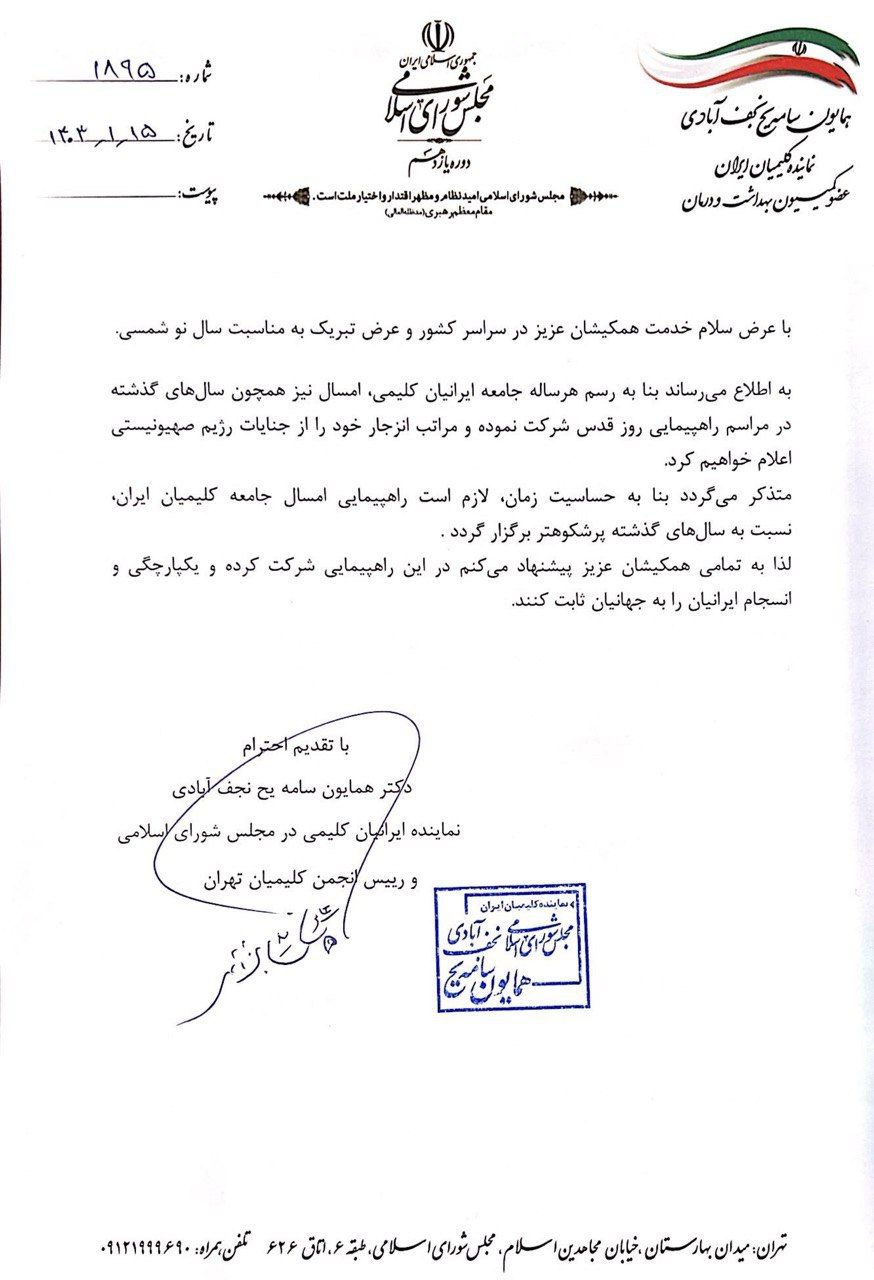 جمهوری اسلامی ایران
مجلس شورای اسلامی
دوره یازدهم
مجلس شورای اسلامی امید نظام و مظهر اقتدار و اختیار ملت است.
مقام معظم رهبری (مدظله‌العالی)
همایون سامه‌یح نجف آبادی
نماینده کلیمیان ایران
عضو کمیسیون بهداشت و درمان
شماره: ۱۸۹۵
تاریخ: ۱۴۰۳/۱/۱۵
پیوست:
با عرض سلام خدمت همکیشان عزیز در سراسر کشور و عرض تبریک به مناسبت سال نو شمسی.
به اطلاع می‌رساند بنا به رسم هرساله جامعه ایرانیان کلیمی، امسال نیز همچون سال‌های گذشته
در مراسم راهپیمایی روز قدس شرکت نموده و مراتب انزجار خود را از جنایات رژیم صهیونیستی
اعلام خواهیم کرد.
متذکر می‌گردد بنا به حساسیت زمان، لازم است راهپیمایی امسال جامعه کلیمیان ایران،
نسبت به سال‌های گذشته پرشکوهتر برگزار گردد .
لذا به تمامی همکیشان عزیز پیشنهاد می‌کنم در این راهپیمایی شرکت کرده و یکپارچگی و
انسجام ایرانیان را به جهانیان ثابت کنند.
با تقدیم احترام
دکتر همایون سامه یح نجف آبادی
نماینده ایرانیان کلیمی در مجلس شورای اسلامی
و رییس انجمن کلیمیان تهران
نماینده کلیمیان ایران
مجلس شورای اسلامی
نجف آبادی
همایون سامه‌یح
تهران: میدان بهارستان ،خیابان مجاهدین اسلام، مجلس شورای اسلامی، طبقه ۶، اتاق ۶۲۶ تلفن همراه: ۰۹۱۲۱۹۹۹۶۹۰